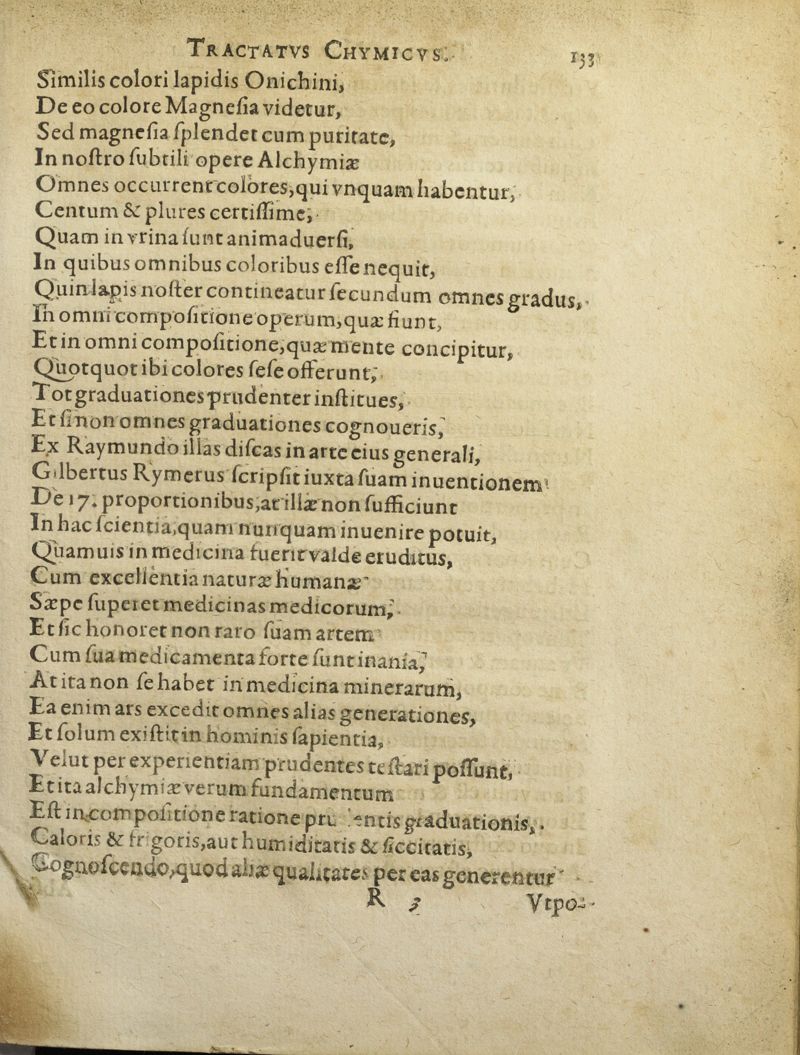 TRACTATVS CHYMICVS. 133
Similis colori lapidis Onichini,
De eo colore Magneſia videtur,
Sed magneſia ſplendet cum puritate,
In noſtro ſubtili opere Alchymiæ
Omnes occurrent colores, qui vnquam habentur,
Centum & plures certiſſime,
Quam in vrina ſunt animaduerſi,
In quibus omnibus coloribus eſſe nequit,
Quin lapis noſter contineatur ſecundum omnes gradus,
In omni compoſitione operum, quæ fiunt,
Et in omni compoſitione, quæ mente concipitur,
Quotquot ibi colores ſeſe offerunt,
Tot graduationes prudenter inſtitues,
Et ſi non omnes graduationes cognoueris,
Ex Raymundo illas diſcas in arte eius generali,
Gilbertus Rymerus ſcripſit iuxta ſuam inuentionem
De 17. proportionibus, at illæ non ſufficiunt
In hac ſcientia, quam nunquam inuenire potuit,
Quamuis in medicina fuerit valde eruditus,
Cum excellentia naturæ humanæ
Sæpe ſuperet medicinas medicorum,
Et ſic honoret non raro ſuam artem
Cum ſua medicamenta forte ſunt inania,
At ita non ſe habet in medicina minerarum,
Ea enim ars excedit omnes alias generationes,
Et ſolum exiſtit in hominis ſapientia,
Velut per experientiam prudentes teſtari poſſunt,
Et ita alchymiæ verum fundamentum
Eſt in compoſitione ratione graduationis,
Caloris & frigoris, aut humiditatis & ſiccitatis,
Cognoſcendo, quod aliæ qualitates per eas generentur
R 3 Vtpo-